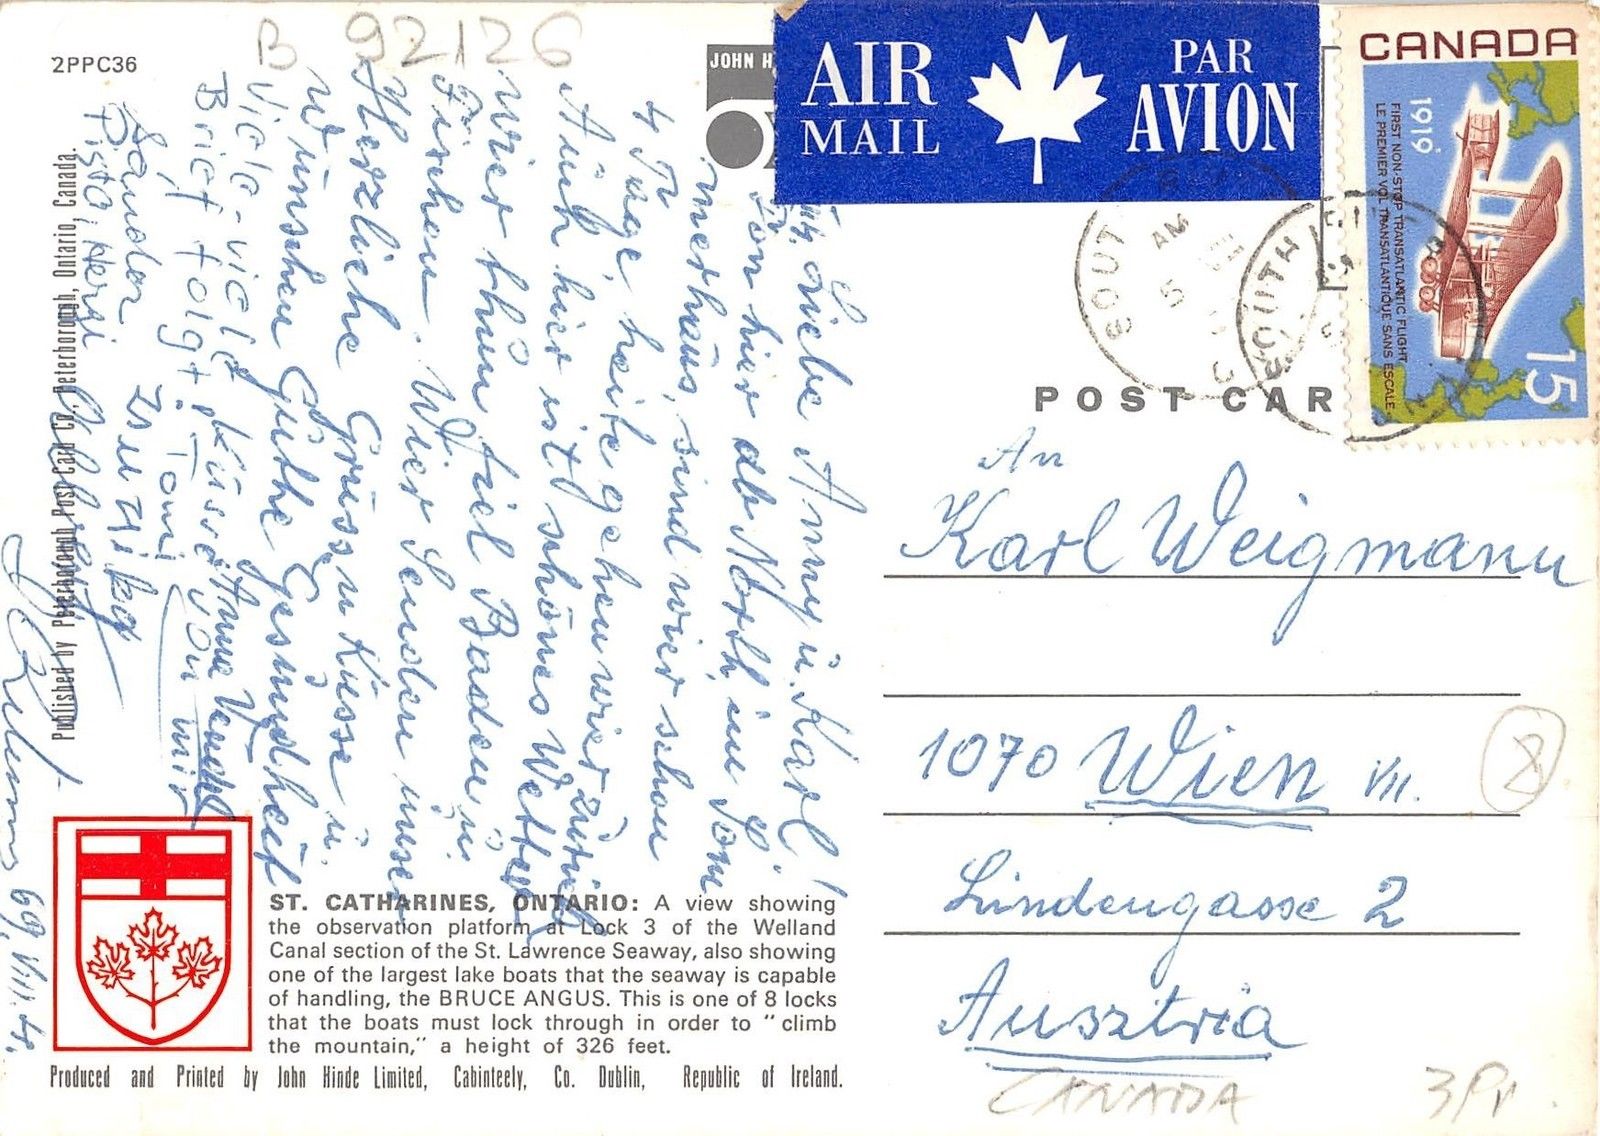 2PPC36
B 92126
JOHN H
AIR MAIL
PAR AVION
CANADA
1919
FIRST NON-STOP TRANSATLANTIC FLIGHT
LE PREMIER VOL TRANSATLANTIQUE SANS ESCALE
15
SOUTH
AM
5
POST CAR
Liebe Anny u. Karl!
Von hier
North im Som
merhaus, sind wier schon
4 Tage, heite gehen wier zurück
Auch hier ist schönes Wetter
wier thun fiel Baden u.
Fischen. Wier senden unser
Herzliche Grüsse u Küsse u.
Wünschen Guthe Gesundheit
Viele-viele Küsse von mir
Brief folgt. Tomi
Sandor
Pista, Hergi
69. VIII. 4.
An
Karl Weigmann
1070 Wien VII.
Lindengasse 2
Ausztria
8
CANADA
Published by Peterborough Post Card Co., Peterborough, Ontario, Canada.
ST. CATHARINES, ONTARIO: A view showing
the observation platform at Lock 3 of the Welland
Canal section of the St. Lawrence Seaway, also showing
one of the largest lake boats that the seaway is capable
of handling, the BRUCE ANGUS. This is one of 8 locks
that the boats must lock through in order to "climb
the mountain," a height of 326 feet.
Produced and Printed by John Hinde Limited, Cabinteely, Co. Dublin, Republic of Ireland.